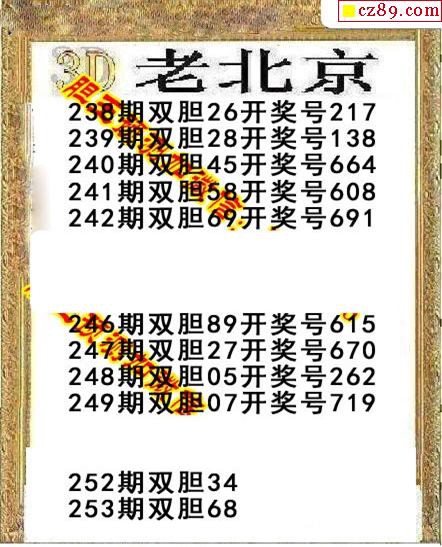 cz89.com
3D 老北京
238期双胆26开奖号217
239期双胆28开奖号138
240期双胆45开奖号664
241期双胆58开奖号608
242期双胆69开奖号691
246期双胆89开奖号615
247期双胆27开奖号670
248期双胆05开奖号262
249期双胆07开奖号719
252期双胆34
253期双胆68